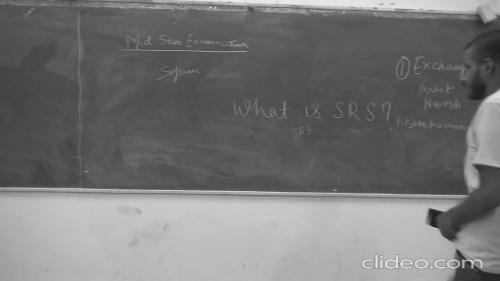 Mid Sem Examination
Software
What is SRS?
SRS
① Exchange
Ankit
Naresh
clideo.com